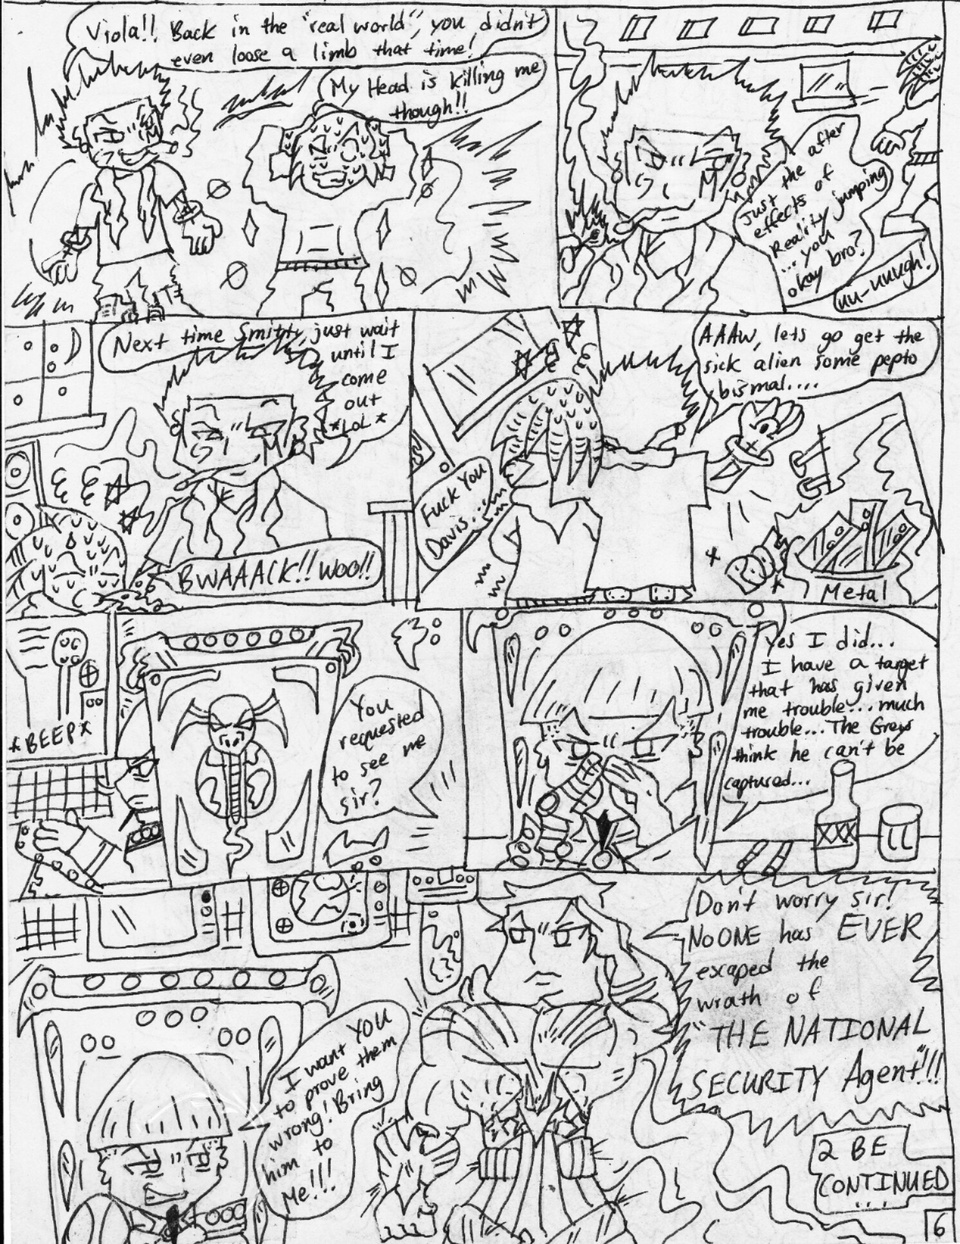 Viola!! Back in the "real world", you didn't
even loose a limb that time!
My Head is killing me
though!!
Just the after
effects of
Reality jumping
... you
okay bro?
uu-uuugh!
Next time Smitty, just wait
until I
come
out
*LOL*
BWAAACK!! woo!!
AAAW, lets go get the
sick alien some pepto
bismal....
Fuck You
Davis....
Metal
*BEEP*
You
requested
to see me
sir?
Yes I did...
I have a target
that has given
me trouble... much
trouble... The Greys
think he can't be
captured...
I want YOU
to prove them
wrong! Bring
him to
Me!!!
Don't worry sir!
NoONE has EVER
escaped the
wrath of
"THE NATIONAL
SECURITY Agent"!!!
2 BE
CONTINUED
...
6